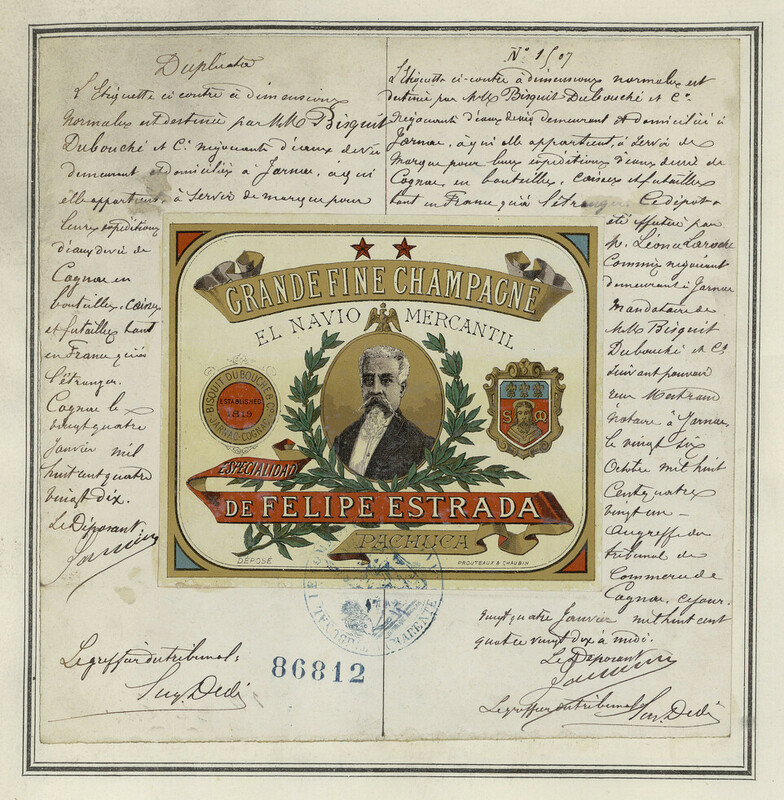 Duplicata
L'Etiquette ci contre à dimensions
normales est destinée par MM Bisquit
Dubouché et Cie négociants d'eaux de vie
demeurant et domiciliés à Jarnac, à qui
elle appartient, à servir de marque pour
leurs expéditions
d'eaux de vie de
Cognac en
bouteilles, caisses
et futailles tant
en France qu'à
l'étranger.
Cognac le
vingt quatre
Janvier mil
huit cent quatre
vingt dix.
Le Déposant
Le greffier du tribunal,
N° 1507
L'Etiquette ci-contre à dimensions normales est
destinée par MM Bisquit Dubouché et Cie
négociants d'eaux de vie demeurant et domiciliés à
Jarnac, à qui elle appartient, à servir de
marque pour leurs expéditions d'eaux de vie de
Cognac, en bouteilles, caisses et futailles
tant en France qu'à l'étranger. Ce dépôt a
été effectué par
M. Léonce Laroche
Commis négociant
demeurant à Jarnac
Mandataire de
MM Bisquit
Dubouché et Cie
suivant pouvoir
reçu Mertrand
notaire à Jarnac
le vingt six
Octobre mil huit
Cent quatre
vingt un -
Au greffe du
tribunal de
Commerce de
Cognac, ce jour.
vingt quatre Janvier mil huit cent
quatre vingt dix à midi.
Le Déposant
Le greffier du tribunal
GRANDE FINE CHAMPAGNE
EL NAVIO MERCANTIL
BISQUIT DUBOUCHÉ & Co
ESTABLISHED
1819
JARNAC-COGNAC
S M
ESPECIALIDAD
DE FELIPE ESTRADA
PACHUCA
DÉPOSÉ
PROUTEAUX & CHAUBIN
86812